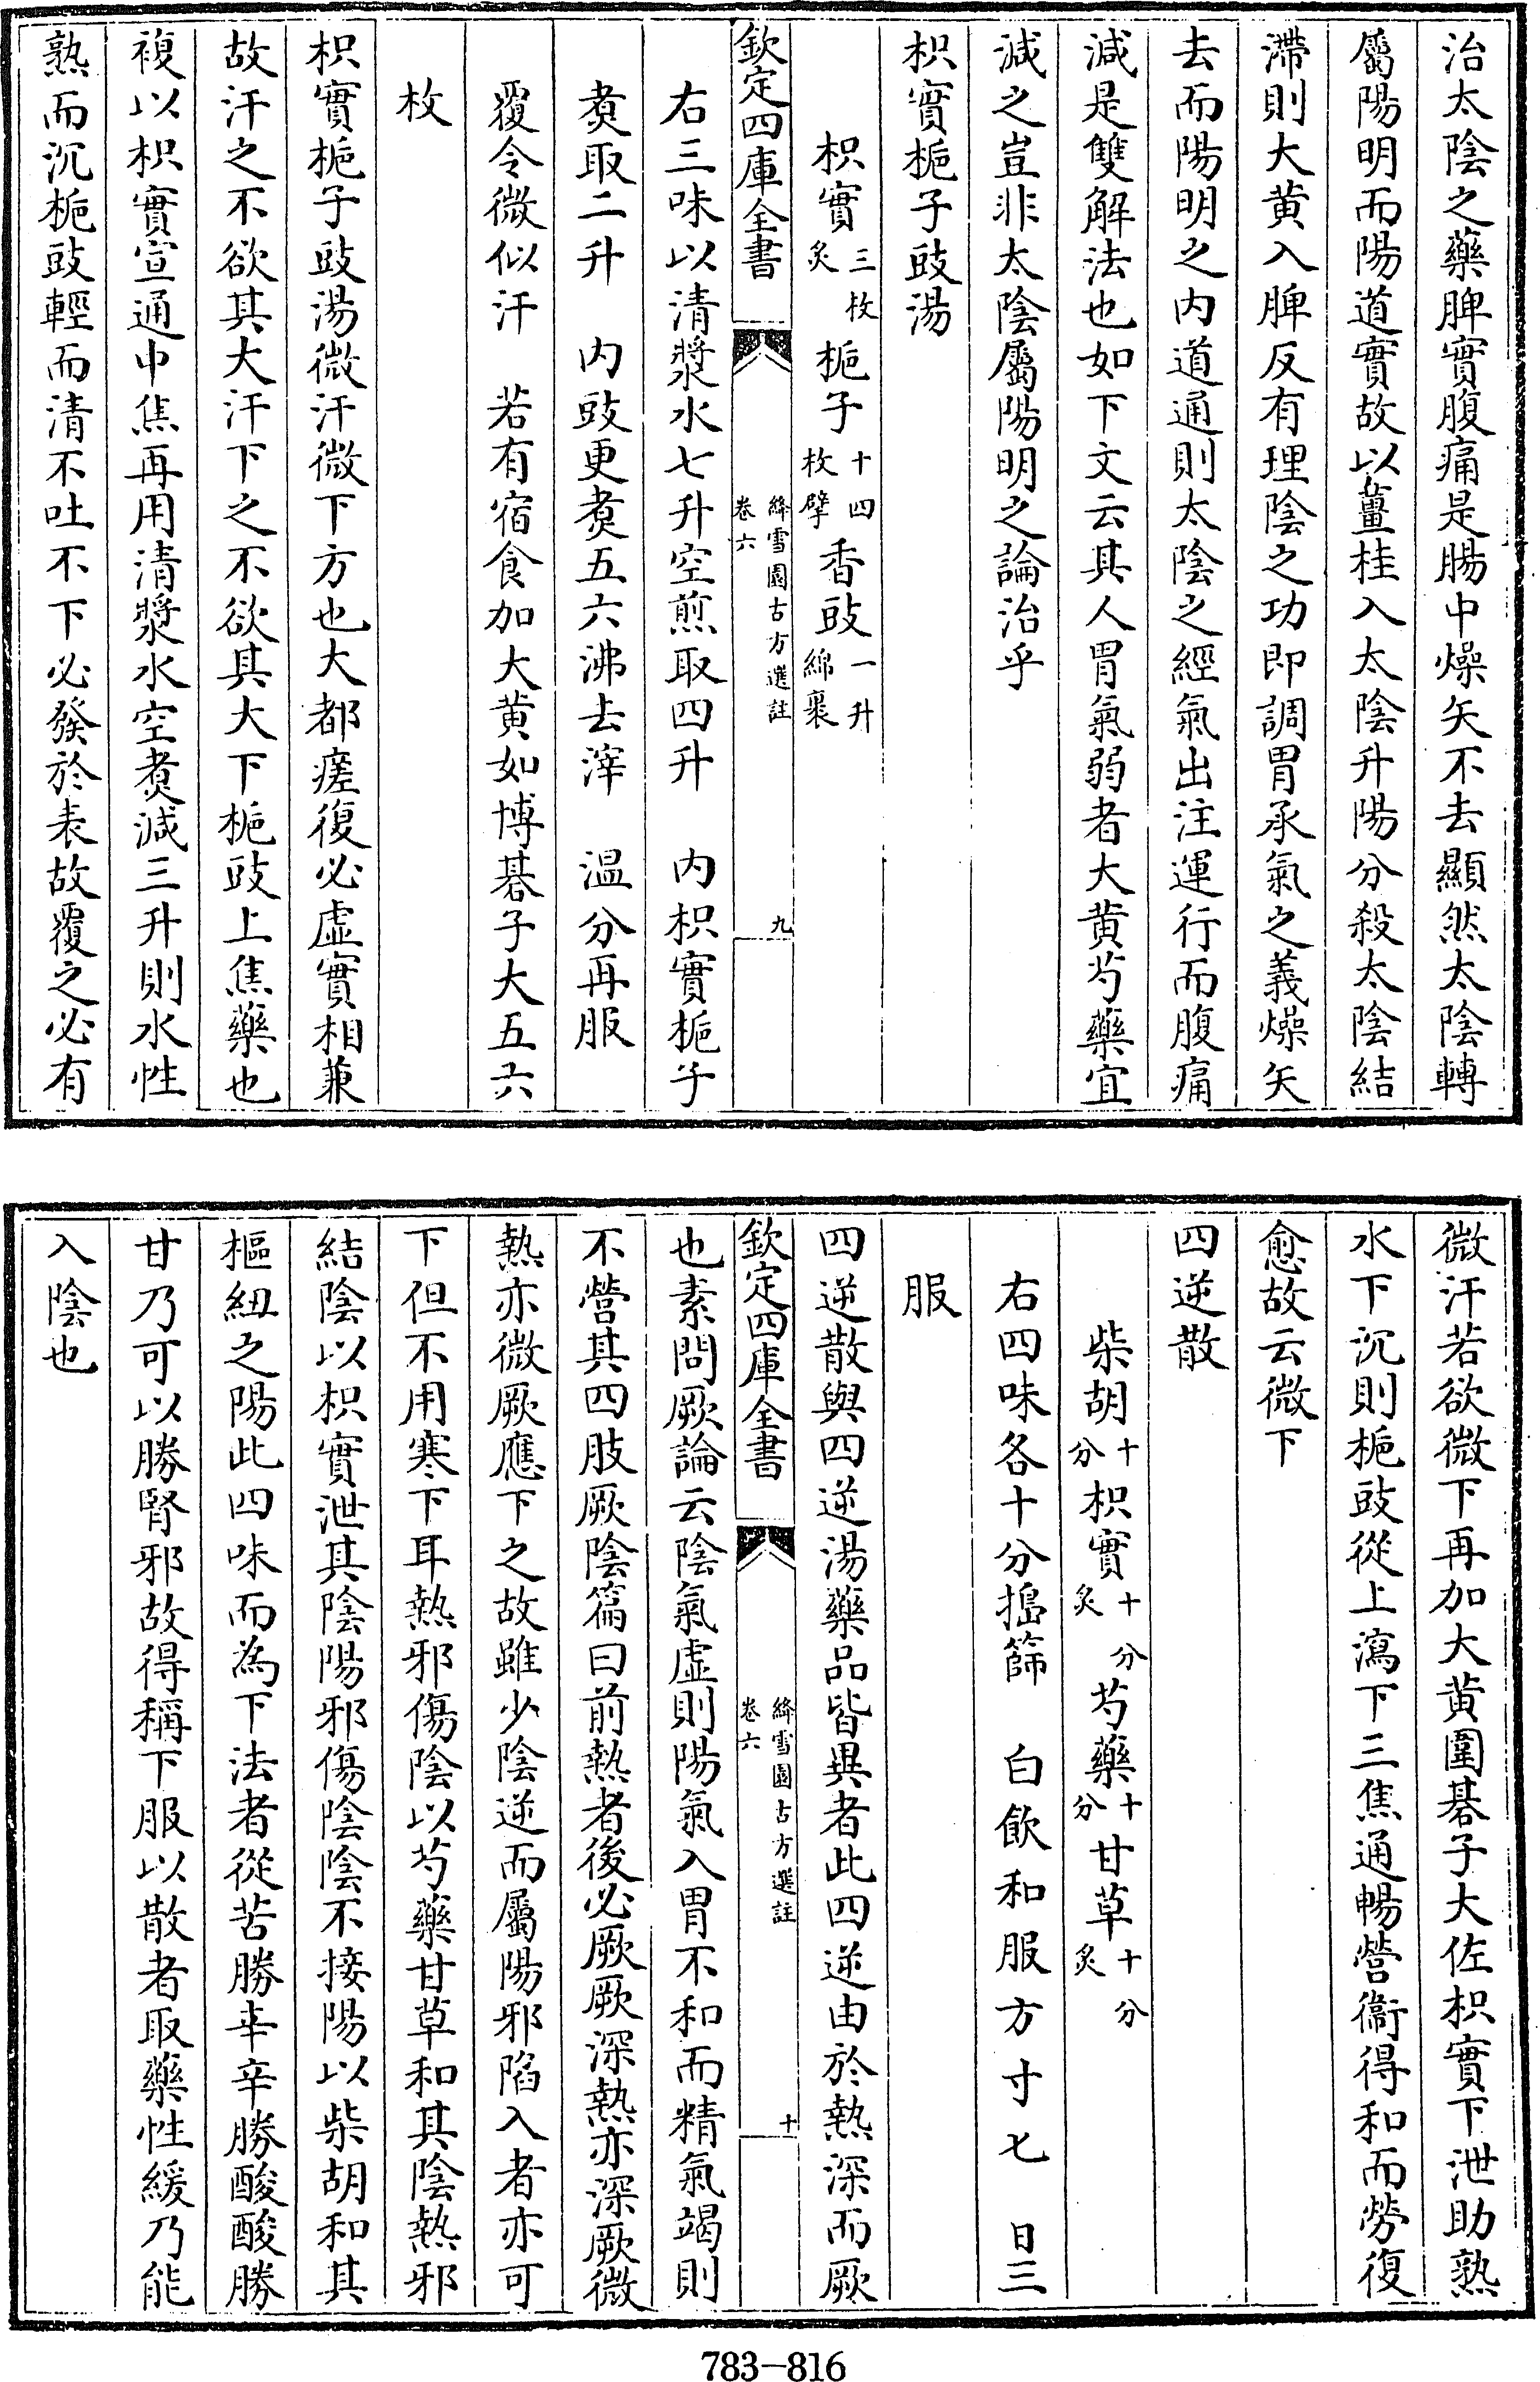 治太陰之藥脾實腹痛是腸中燥矢不去顯然太陰轉
屬陽明而陽道實故以薑桂入太陰升陽分殺太陰結
滯則大黄入脾反有理陰之功即調胃承氣之義燥矢
去而陽明之内道通則太陰之經氣出注運行而腹痛
減是雙解法也如下文云其人胃氣弱者大黄芍藥宜
減之豈非太陰屬陽明之論治乎
枳實梔子豉湯
枳實三枚炙 梔子十四枚擘 香豉一升綿裹
欽定四庫全書 絳雪園古方選註 卷六 九
右三味以清漿水七升空煎取四升 内枳實梔子
煑取二升 内豉更煑五六沸去滓 温分再服
覆令微似汗 若有宿食加大黄如博碁子大五六
枚
枳實梔子豉湯微汗微下方也大都瘥復必虛實相兼
故汗之不欲其大汗下之不欲其大下梔豉上焦藥也
複以枳實宣通中焦再用清漿水空煑減三升則水性
熟而沉梔豉輕而清不吐不下必發於表故覆之必有
微汗若欲微下再加大黄圍碁子大佐枳實下泄助熟
水下沉則梔豉從上瀉下三焦通暢營衞得和而勞復
愈故云微下
四逆散
柴胡十分 枳實十分炙 芍藥十分 甘草十分炙
右四味各十分搗篩 白飲和服方寸匕 日三
服
四逆散與四逆湯藥品皆異者此四逆由於熱深而厥
欽定四庫全書 絳雪園古方選註 卷六 十
也素問厥論云陰氣虛則陽氣入胃不和而精氣竭則
不營其四肢厥陰篇曰前熱者後必厥厥深熱亦深厥微
熱亦微厥應下之故雖少陰逆而屬陽邪陷入者亦可
下但不用寒下耳熱邪傷陰以芍藥甘草和其陰熱邪
結陰以枳實泄其陰陽邪傷陰陰不接陽以柴胡和其
樞紐之陽此四味而為下法者從苦勝辛辛勝酸酸勝
甘乃可以勝腎邪故得稱下服以散者取藥性緩乃能
入陰也
783-816